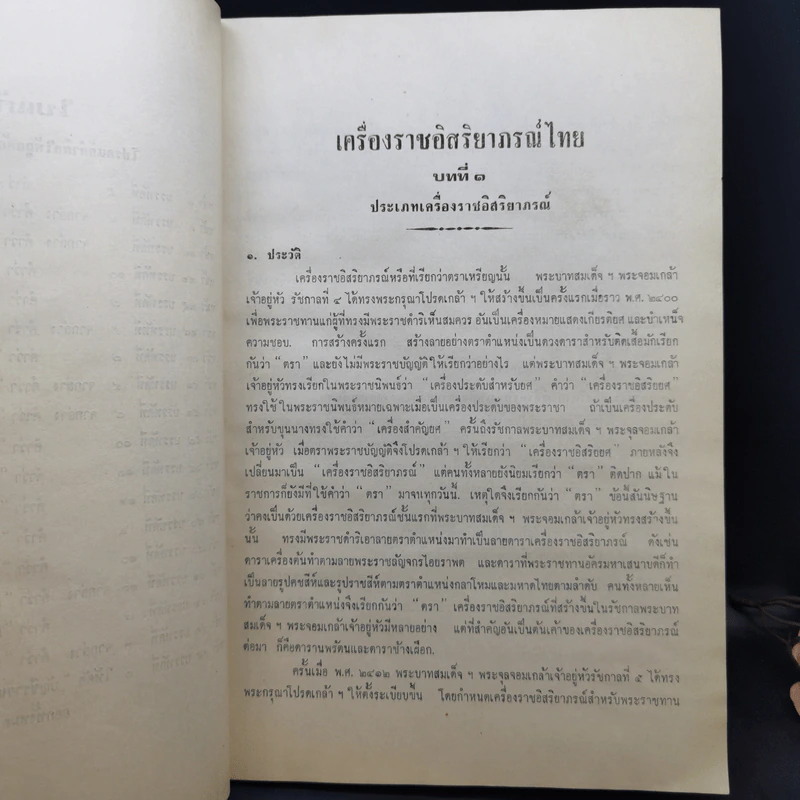 เครื่องราชอิสริยาภรณ์ไทย
บทที่ ๑
ประเภทเครื่องราชอิสริยาภรณ์
๑. ประวัติ
เครื่องราชอิสริยาภรณ์หรือที่เรียกว่าตราเหรียญนั้น พระบาทสมเด็จ ฯ พระจอมเกล้า
เจ้าอยู่หัว รัชกาลที่ ๔ ได้ทรงพระกรุณาโปรดเกล้า ฯ ให้สร้างขึ้นเป็นครั้งแรกเมื่อราว พ.ศ. ๒๔๐๐
เพื่อพระราชทานแก่ผู้ที่ทรงมีพระราชดำริเห็นสมควร อันเป็นเครื่องหมายแสดงเกียรติยศ และบำเหน็จ
ความชอบ. การสร้างครั้งแรก สร้างลายอย่างตราตำแหน่งเป็นดวงดาราสำหรับติดเสื้อมักเรียก
กันว่า “ ตรา ” และยังไม่มีพระราชบัญญัติให้เรียกว่าอย่างไร แต่พระบาทสมเด็จ ฯ พระจอมเกล้า
เจ้าอยู่หัวทรงเรียกในพระราชนิพนธ์ว่า “ เครื่องประดับสำหรับยศ ” คำว่า “ เครื่องราชอิสริยยศ ”
ทรงใช้ในพระราชนิพนธ์หมายเฉพาะเมื่อเป็นเครื่องประดับของพระราชา ถ้าเป็นเครื่องประดับ
สำหรับขุนนางทรงใช้คำว่า “ เครื่องสำคัญยศ ” ครั้นถึงรัชกาลพระบาทสมเด็จ ฯ พระจุลจอมเกล้า
เจ้าอยู่หัว เมื่อตราพระราชบัญญัติจึงโปรดเกล้า ฯ ให้เรียกว่า “ เครื่องราชอิสริยยศ ” ภายหลังจึง
เปลี่ยนมาเป็น “ เครื่องราชอิสริยาภรณ์ ” แต่คนทั้งหลายยังนิยมเรียกว่า “ ตรา ” ติดปาก แม้ใน
ราชการก็ยังมีที่ใช้คำว่า “ ตรา ” มาจนทุกวันนี้. เหตุใดจึงเรียกกันว่า “ ตรา ” ข้อนี้สันนิษฐาน
ว่าคงเป็นด้วยเครื่องราชอิสริยาภรณ์ชั้นแรกที่พระบาทสมเด็จ ฯ พระจอมเกล้าเจ้าอยู่หัวทรงสร้างขึ้น
นั้น ทรงมีพระราชดำริเอาลายตราตำแหน่งมาทำเป็นลายดาราเครื่องราชอิสริยาภรณ์ ดังเช่น
ดาราเครื่องต้นทำตามลายพระราชลัญจกรไอยราพต และดาราที่พระราชทานอัครมหาเสนาบดีก็ทำ
เป็นลายรูปคชสีห์และรูปราชสีห์ตามตราตำแหน่งกลาโหมและมหาดไทยตามลำดับ คนทั้งหลายเห็น
ทำตามลายตราตำแหน่งจึงเรียกกันว่า “ ตรา ” เครื่องราชอิสริยาภรณ์ที่สร้างขึ้นในรัชกาลพระบาท
สมเด็จ ฯ พระจอมเกล้าเจ้าอยู่หัวมีหลายอย่าง แต่ที่สำคัญอันเป็นต้นเค้าของเครื่องราชอิสริยาภรณ์
ต่อมา ก็คือดารานพรัตนและดาราช้างเผือก.
ครั้นเมื่อ พ.ศ. ๒๔๑๒ พระบาทสมเด็จ ฯ พระจุลจอมเกล้าเจ้าอยู่หัวรัชกาลที่ ๕ ได้ทรง
พระกรุณาโปรดเกล้า ฯ ให้ตั้งระเบียบขึ้น โดยกำหนดเครื่องราชอิสริยาภรณ์สำหรับพระราชทาน